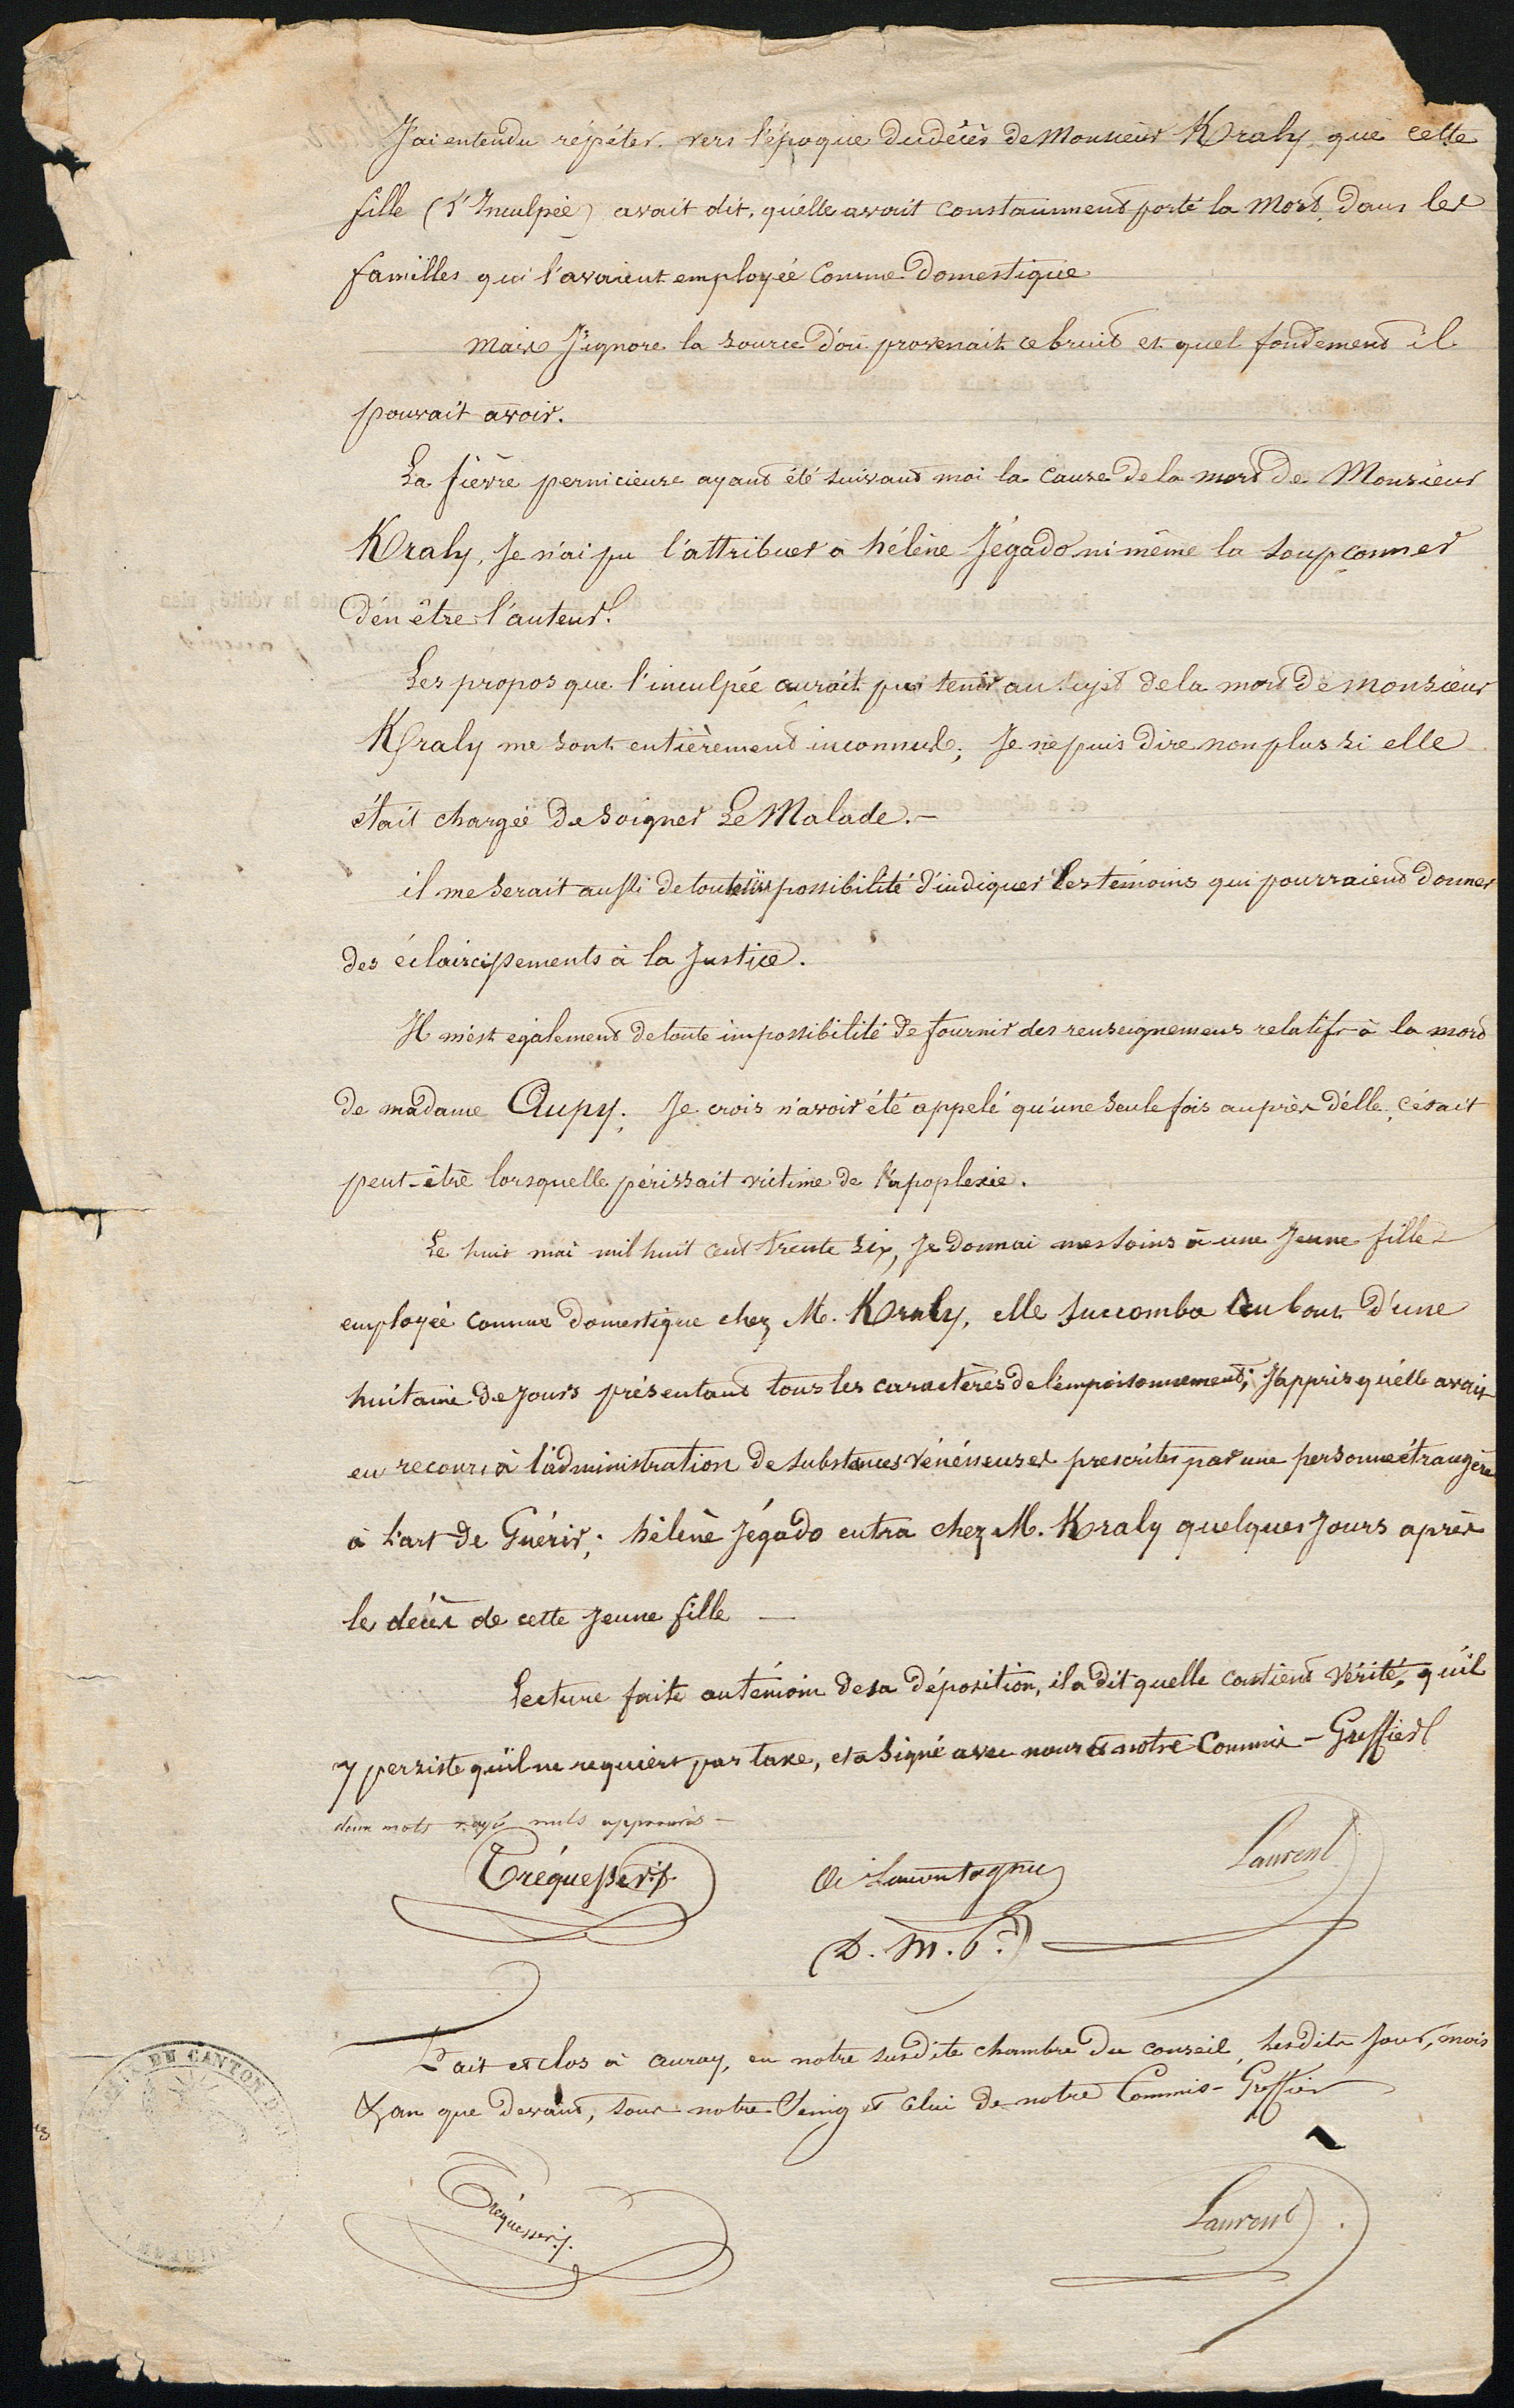 J'ai entendu répéter, vers l'époque du décès de Monsieur Kraly, que cette
fille (l'Inculpée) avait dit, qu'elle avait constamment porté la mort, dans les
familles qui l'avaient employée comme Domestique
mais J'ignore la source d'où provenait ce bruit et quel fondement il
pouvait avoir.
La fièvre pernicieuse ayant été suivant moi la cause de la mort de Monsieur
Kraly, Je n'ai pu l'attribuer à hélène Jégado ni même la soupçonner
d'en être l'auteur.
Les propos que l'inculpée aurait pu tenir au sujet de la mort de monsieur
Kraly me sont entièrement inconnus; Je ne puis dire non plus si elle
était chargée de soigner Le Malade.-
il me serait aussi de toute impossibilité d'indiquer les témoins qui pourraient donner
des éclaircissements à la Justice.
Il m'est également de toute impossibilité de fournir des renseignemens relatifs à la mort
de madame Aupy; Je crois n'avoir été appelé qu'une seule fois auprès d'elle, c'était
peut-être lorsquelle périssait victime de l'apoplexie.
Le huit mai mil huit cent trente six, Je donnai mes soins à une Jeune fille
employée comme domestique chez M. Kraly, elle succomba au bout d'une
huitaine de Jours présentant tous les caractères de l'empoisonnement; J'appris qu'elle avait
eu recours à l'administration de substances vénéneuses prescrites par une personne étrangère
à l'art de Guérir; hélène Jégado entra chez M. Kraly quelques Jours après
le décès de cette Jeune fille —
Lecture faite au témoin de sa déposition, il a dit quelle contient vérité, qu'il
y persiste qu'il ne requiert pas taxe, et a signé avec nous et notre Commis-Greffier
deux mots rayés nuls approuvés -
Tréguesser j.p.
Lamontagne
Laurent
(D. M. P.)
Fait et clos à auray, en notre susdite chambre du conseil, lesdits Jour, mois
& an que devant, sous notre Seing et celui de notre Commis-Greffier
Tréguesser j.
Laurent
DE CANTON D